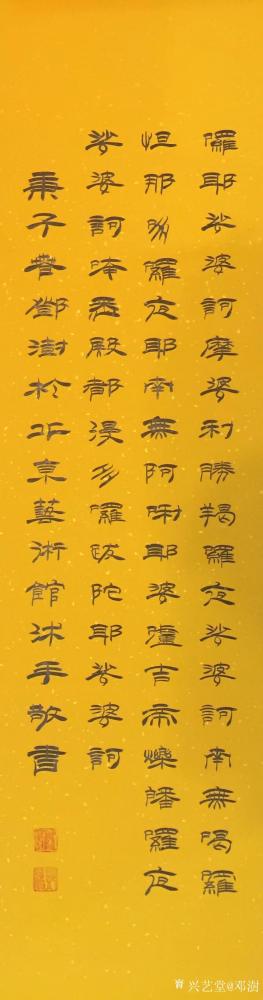 囉耶娑婆訶摩婆利勝羯囉夜娑婆訶南無喝囉
怛那哆囉夜耶南無阿唎耶婆嚧吉帝爍皤囉夜
娑婆訶唵悉殿都漫多囉跋陀耶娑婆訶
庚子春鄧澍於北京藝術館沐手敬書
兴艺堂@邓澍